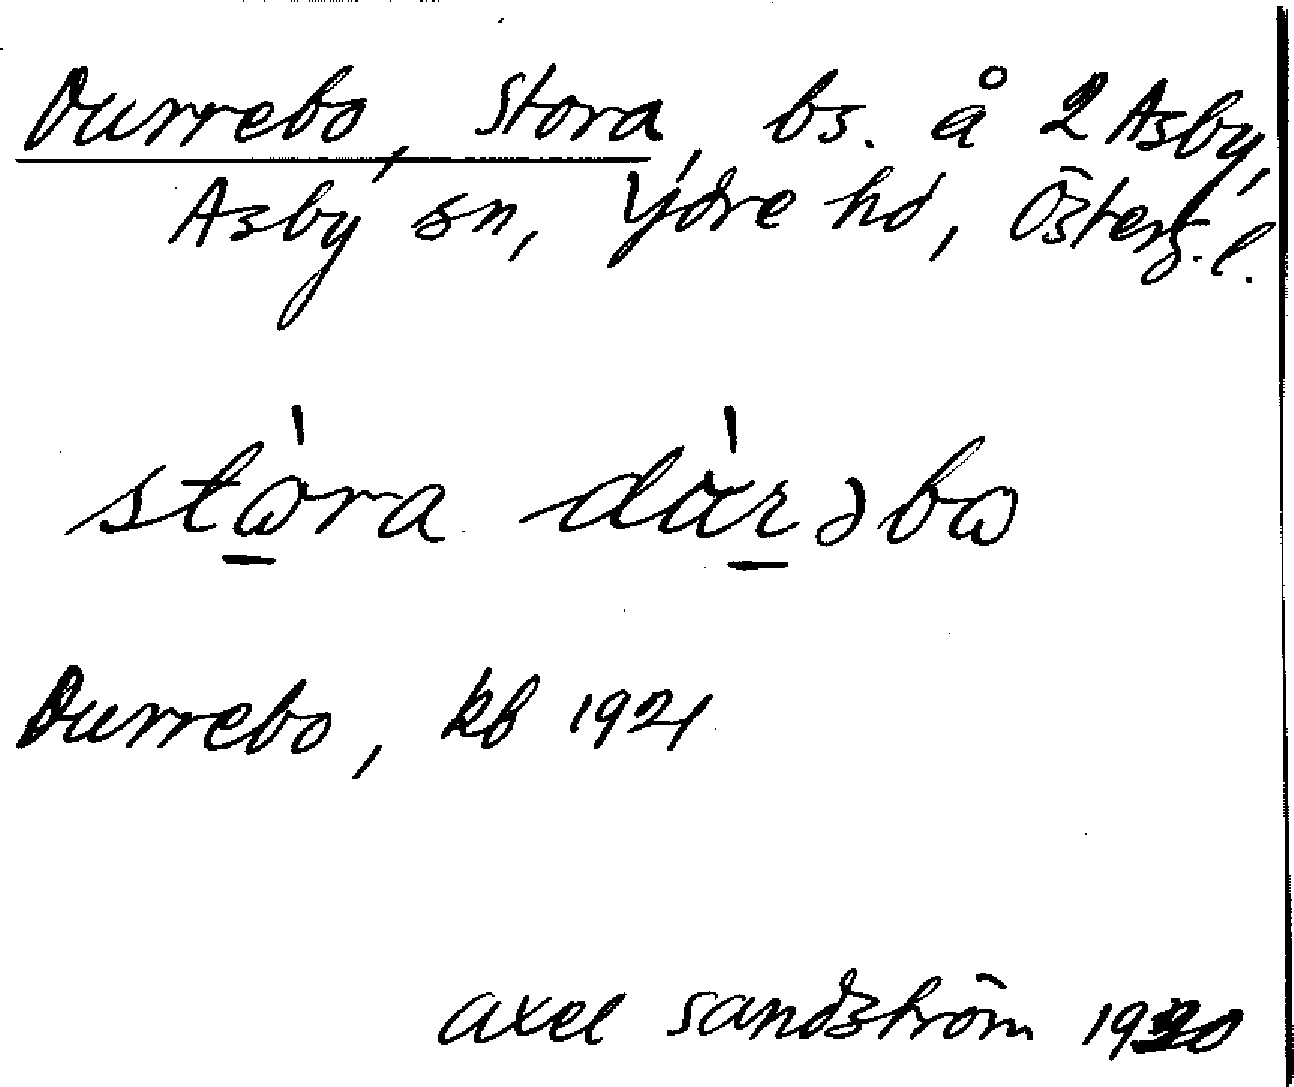 Durrebo, Stora, bs. å 2 Asby,
Asby sn, Ydre hd, Österg. l.
stòra dàrəbo
Durrebo, kb 1921
axel sandström